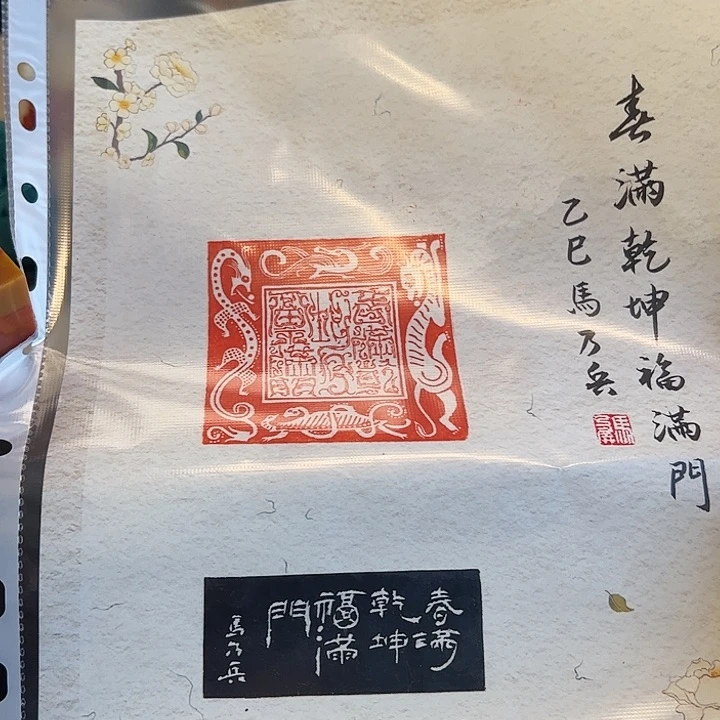 春滿乾坤福滿門
乙巳馬乃兵
春滿
乾坤
福滿
門
馬乃兵